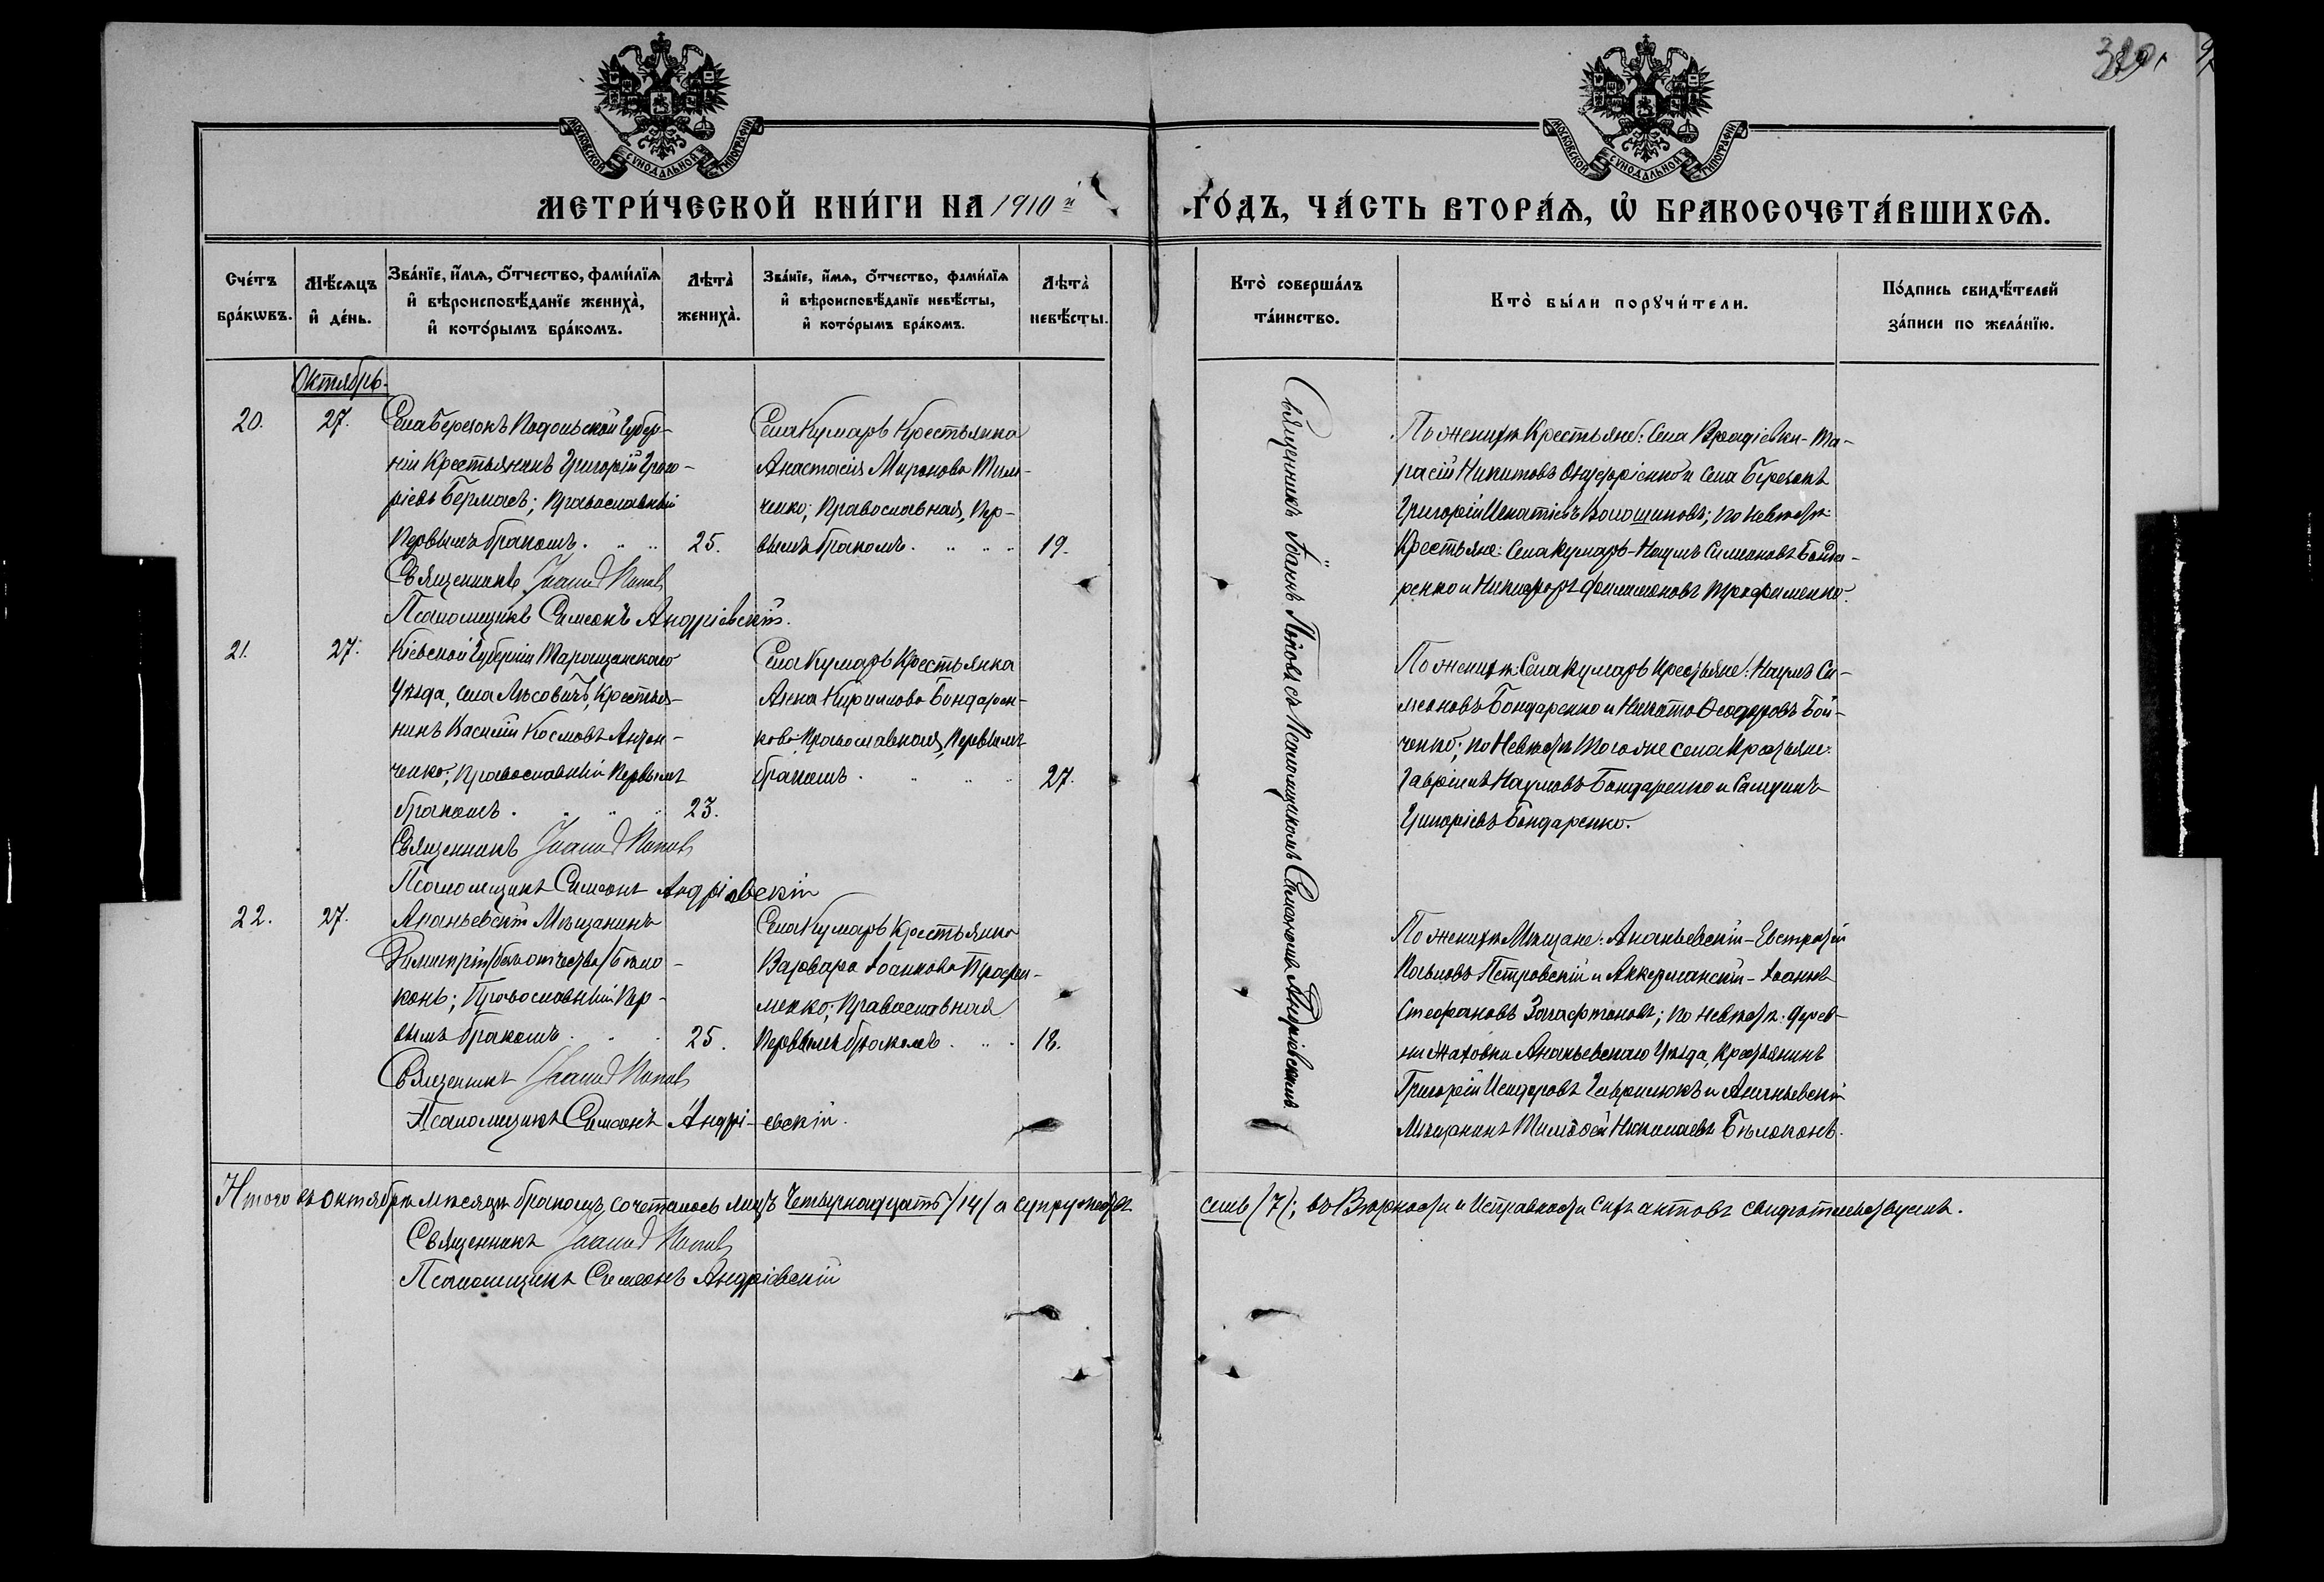 320
МОСКОВСКОЙ СѴНОДАЛЬНОЙ ТИПОГРАФІИ
МОСКОВСКОЙ СѴНОДАЛЬНОЙ ТИПОГРАФІИ
МЕТРИ́ЧЕСКОЙ КНИ́ГИ НА 1910й ГО́ДЪ, ЧА́СТЬ ВТОРА́Ѧ, Ѡ҆ БРАКОСОЧЕТА́ВШИХСѦ.
Сче́тъ бра́кѡвъ.
Мѣ́сѧцъ и҆ де́нь.
Зва́нїе, и҆́мѧ, ѻ҆́тчество, фами́лїѧ
и҆ вѣроисповѣ́данїе жениха̀,
и҆ кото́рымъ бра́комъ.
Лѣта̀ жениха̀.
Зва́нїе, и҆́мѧ, ѻ҆́тчество, фами́лїѧ
и҆ вѣроисповѣ́данїе невѣ́сты,
и҆ кото́рымъ бра́комъ.
Лѣта̀ невѣ́сты.
Кто̀ соверша́лъ
та́инство.
Кто̀ бы́ли порꙋчи́тели.
По́дпись свидѣ́телей
за́писи по жела́нїю.
Октябрь.
20.
27.
Села Березокъ Подольской Губер-
ніи Крестьянинъ Григорій Григо-
ріевъ Бермасъ; Православный
Первымъ бракомъ.
25.
Священникъ Іоаннъ Поповъ
Псаломщикъ Симеонъ Андріевскій.
Села Кумаръ Крестьянка
Анастасія Миронова Тим-
ченко; Православная, Пер-
вымъ бракомъ.
19.
Священникъ Іоаннъ Поповъ съ Псаломщикомъ Симеономъ Андріевскимъ.
По женихѣ Крестьяне: Села Врадіевки - Та-
расій Никитовъ Онуфріенко и Села Березокъ
Григорій Игнатіевъ Волошиновъ; по невѣстѣ
Крестьяне: Села Кумаръ - Наумъ Симеоновъ Бонда-
ренко и Никифоръ Филимоновъ Трофименко.
21.
27.
Кіевской Губерніи Таращанскаго
Уѣзда, Села Лѣсовичъ, Крестья-
нинъ Василій Космовъ
ченко; Православный Первымъ
бракомъ.
23.
Священникъ Іоаннъ Поповъ
Псаломщикъ Симеонъ Андріевскій
Села Кумаръ Крестьянка
Анна Кирилова Бондарен-
кова Православная, Первымъ
бракомъ.
27.
По женихѣ: Села Кумаръ Крестьяне: Наумъ Си-
меоновъ Бондаренко и Никита Ѳеодоровъ Бой-
ченко; по Невѣстѣ Того же села Крестьяне:
Гавріилъ Наумовъ Бондаренко и Самуилъ
Григоріевъ Бондаренко.
22.
27.
Ананьевскій Мѣщанинъ
Димитрій /безъ отчества/ Бѣло-
конь; Православный Пер-
вымъ бракомъ.
25.
Священникъ Іоаннъ Поповъ
Псаломщикъ Симеонъ Андрі-евскій.
Села Кумаръ Крестьянка
Варвара Іоаннова Трофи-
менко; Православная
Первымъ бракомъ.
18.
По женихѣ Мѣщане: Ананьевскій - Евстратій
Павловъ Петровскій и Аккерманскій - Іоаннъ
Стефановъ по невѣстѣ: дерев-
ни Ананьевскаго Уѣзда, Крестьянинъ
Григорій Исидоровъ Гаврилюкъ и Ананьевскій
Мѣщанинъ Тимоѳей Николаевъ Бѣлоконь.
Итого въ октябрѣ мѣсяцѣ бракомъ сочеталось лицъ Четырнадцать /14/ а супружествъ семь /7/; въ Вѣрности и Исправности сихъ актовъ свидѣтельствуемъ.
Священникъ Іоаннъ Поповъ
Псаломщикъ Симеонъ Андріевскій